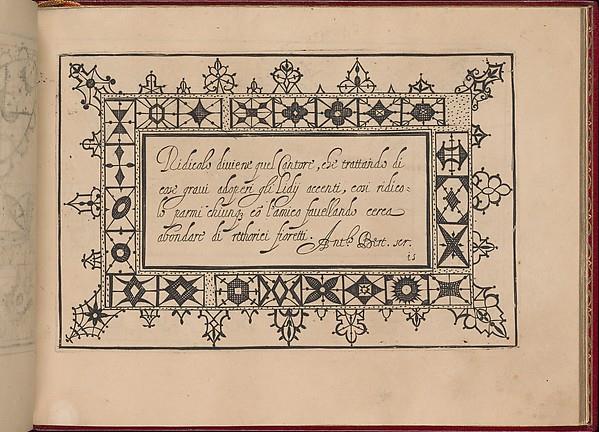 Ridicolo diviene quel Cantore, che trattando di
cose gravi adoperi gli lidij accenti, cosi ridico=
lo parmi chiunq; cō l'amico favellando cerca
abondare di rethorici fioretti. Antº Bert. scr.
is